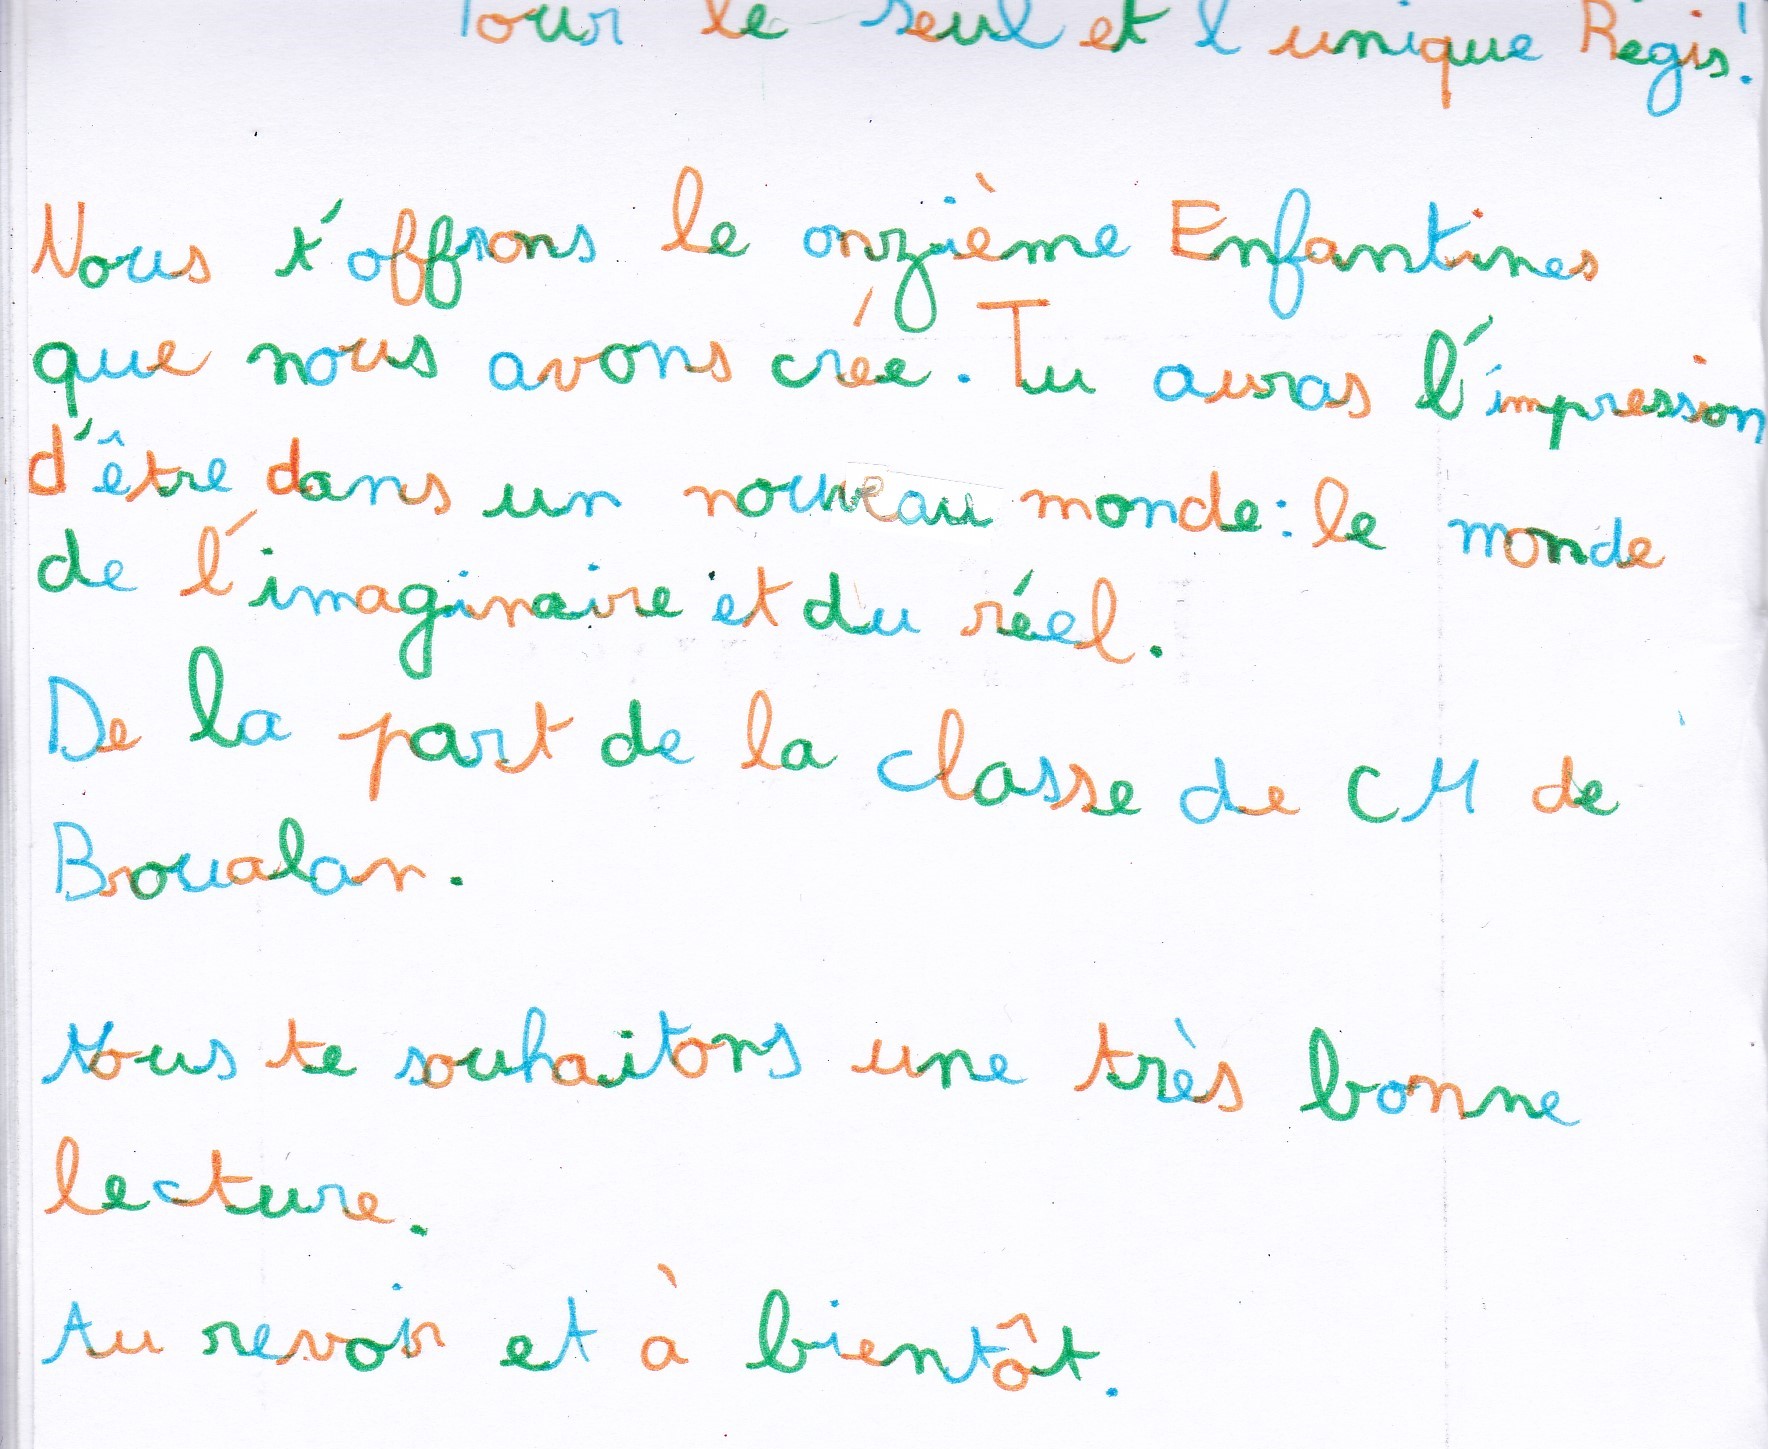 Pour le seul et l'unique Régis!
Nous t'offrons le onzième Enfantines
que nous avons crée. Tu auras l'impression
d'être dans un nouveau monde: le monde
de l'imaginaire et du réel.
De la part de la classe de CM de
Broualan.
Nous te souhaitons une très bonne
lecture.
Au revoir et à bientôt.